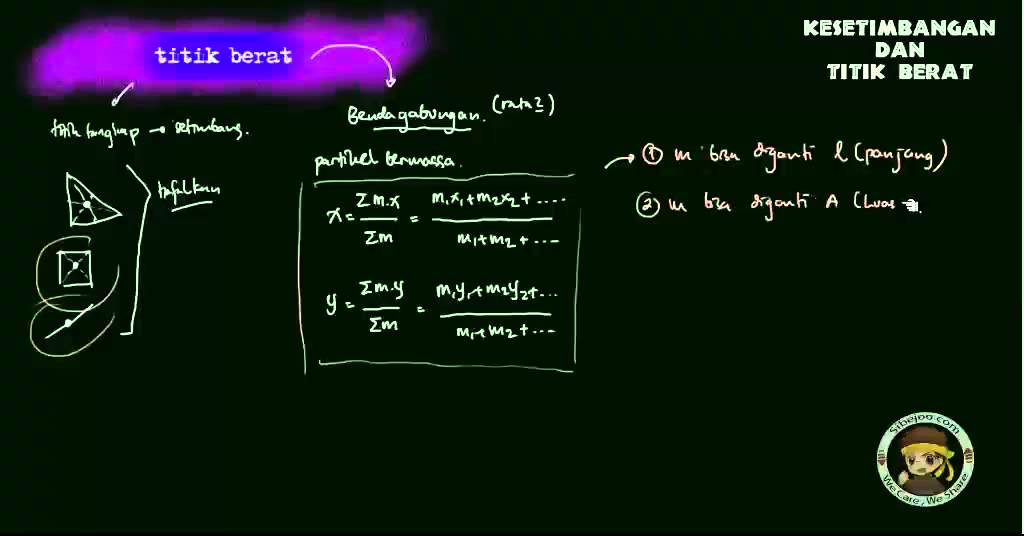 titik berat
KESETIMBANGAN
DAN
TITIK BERAT
titik tangkap → setimbang.
hafalkan
Benda gabungan. (rata2)
partikel bermassa.
x = Σm.x / Σm = m₁x₁+m₂x₂+.... / m₁+m₂+...
y = Σm.y / Σm = m₁y₁+m₂y₂+... / m₁+m₂+...
① m bisa diganti l (panjang)
② m bisa diganti A (Luas
Sibejoo.com
We Care, We Share